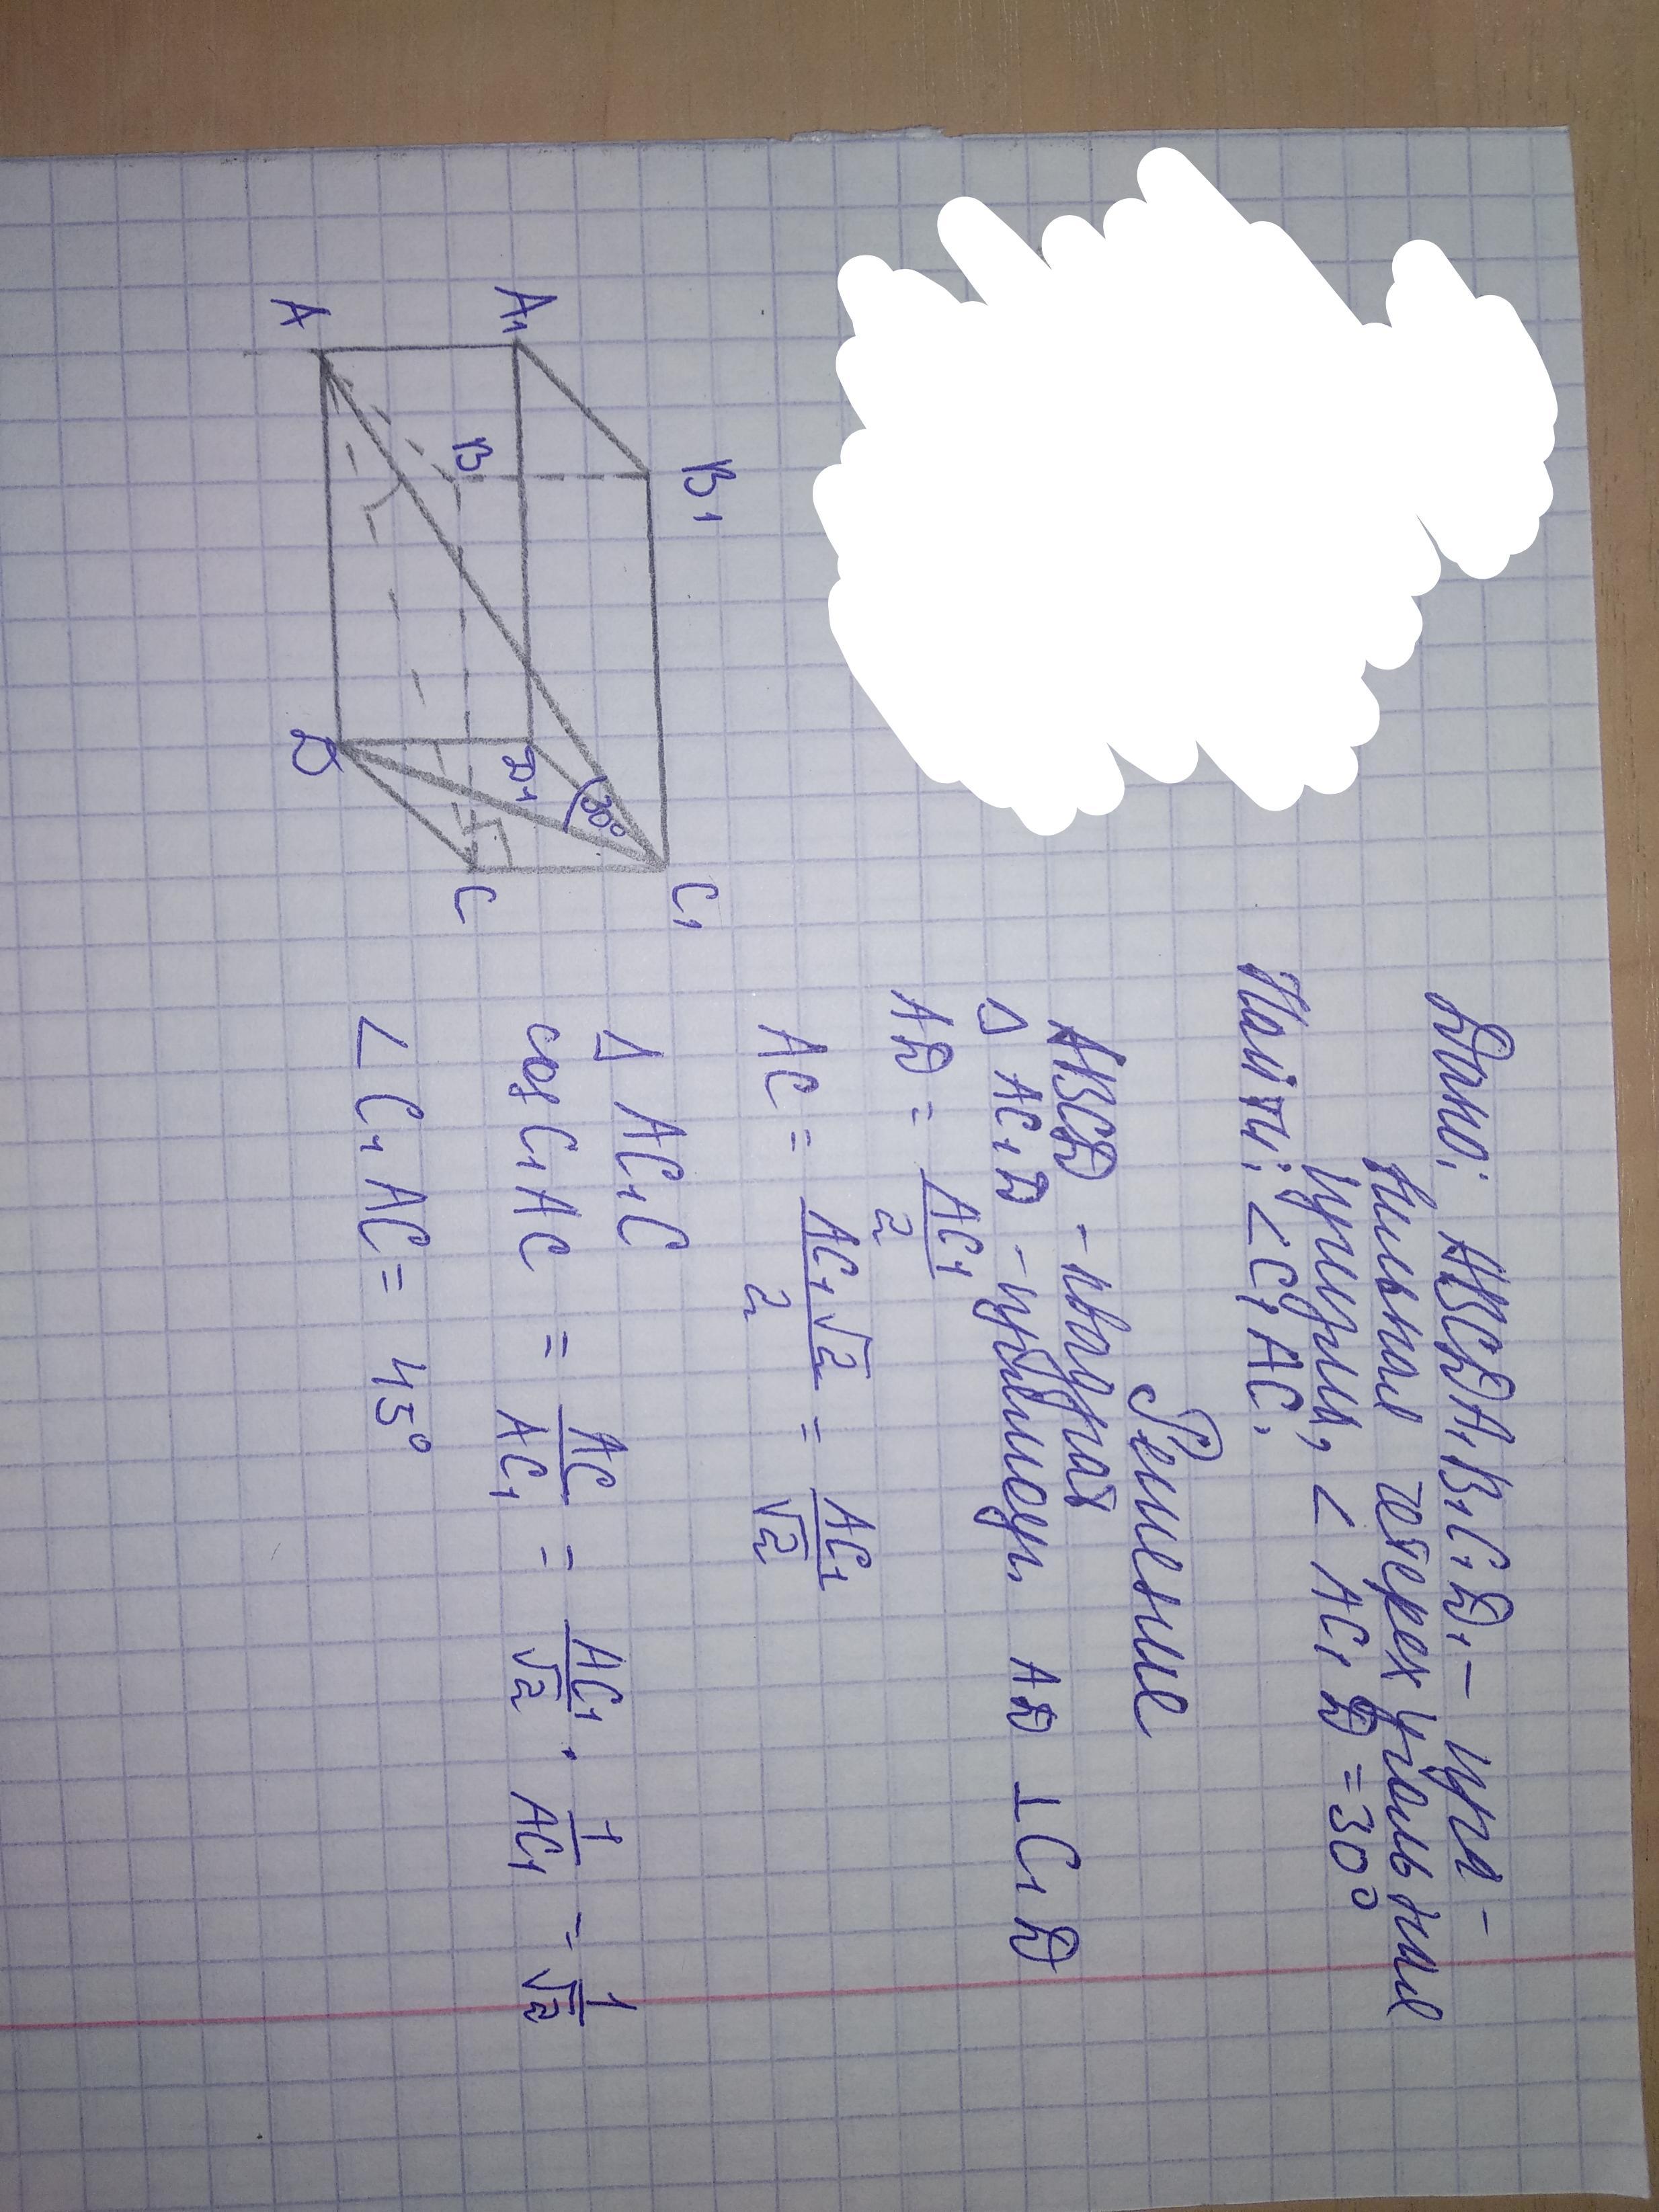 Дано: ABCDA₁B₁C₁D₁ – пра-
вильная четерехугольная
призма, < AC₁D = 30°
Найти: < C₁AC.
Решение
ABCD – квадрат
Δ AC₁D – прямоуг. AD ⊥ C₁D
AD = AC₁/2
AC = AC₁√2/2 = AC₁/√2
Δ AC₁C
cos C₁AC = AC/AC₁ = AC₁/√2 · 1/AC₁ = 1/√2
< C₁AC = 45°
B₁
C₁
A₁
D₁
30°
B
C
A
D